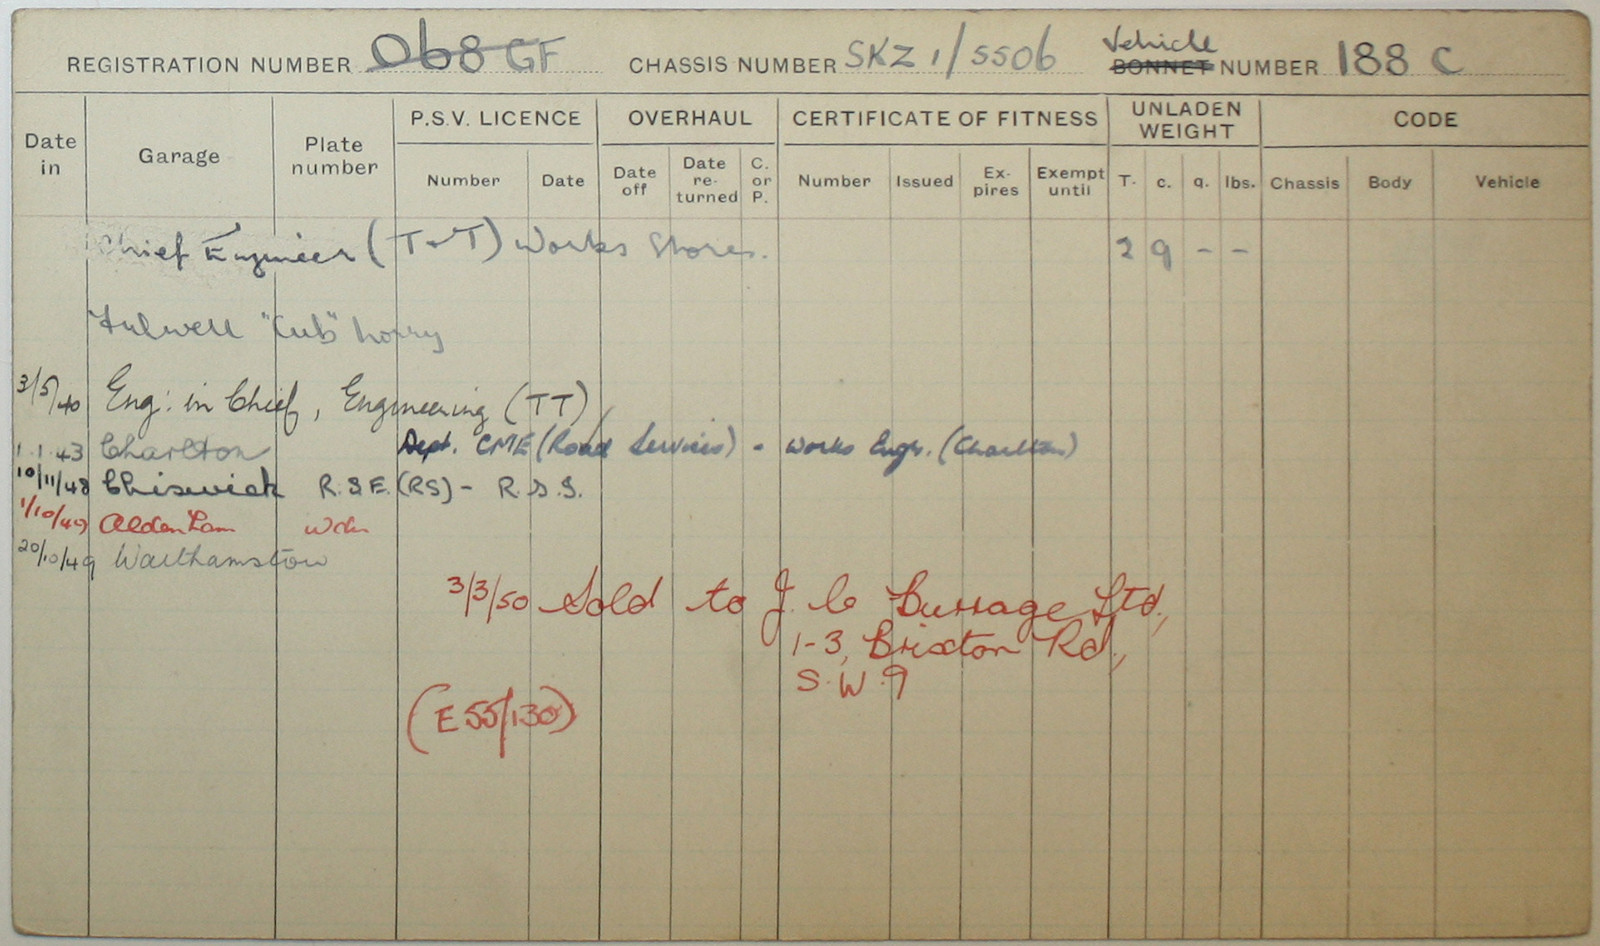 REGISTRATION NUMBER 068 GF CHASSIS NUMBER SKZ 1/5506 Vehicle BONNET NUMBER 188 C
Date in Garage Plate number P.S.V. LICENCE OVERHAUL CERTIFICATE OF FITNESS UNLADEN WEIGHT CODE
Number Date Date off Date re-turned C. or P. Number Issued Ex-pires Exempt until T. c. q. lbs. Chassis Body Vehicle
Chief Engineer (T & T) Works Stores. 2 9 - -
Fulwell "Cub" Lorry
3/5/40 Eng: in Chief, Engineering (TT)
1.1.43 Charlton Dept. CME (Road Services) - Works Engr. (Charlton)
10/11/48 Chiswick R.S.E. (RS) - R.S.S.
1/10/49 Aldenham
20/10/49 Walthamstow
3/3/50 Sold to J. C Burrage Ltd,
1-3, Brixton Rd,
S.W.9
(E55/130)